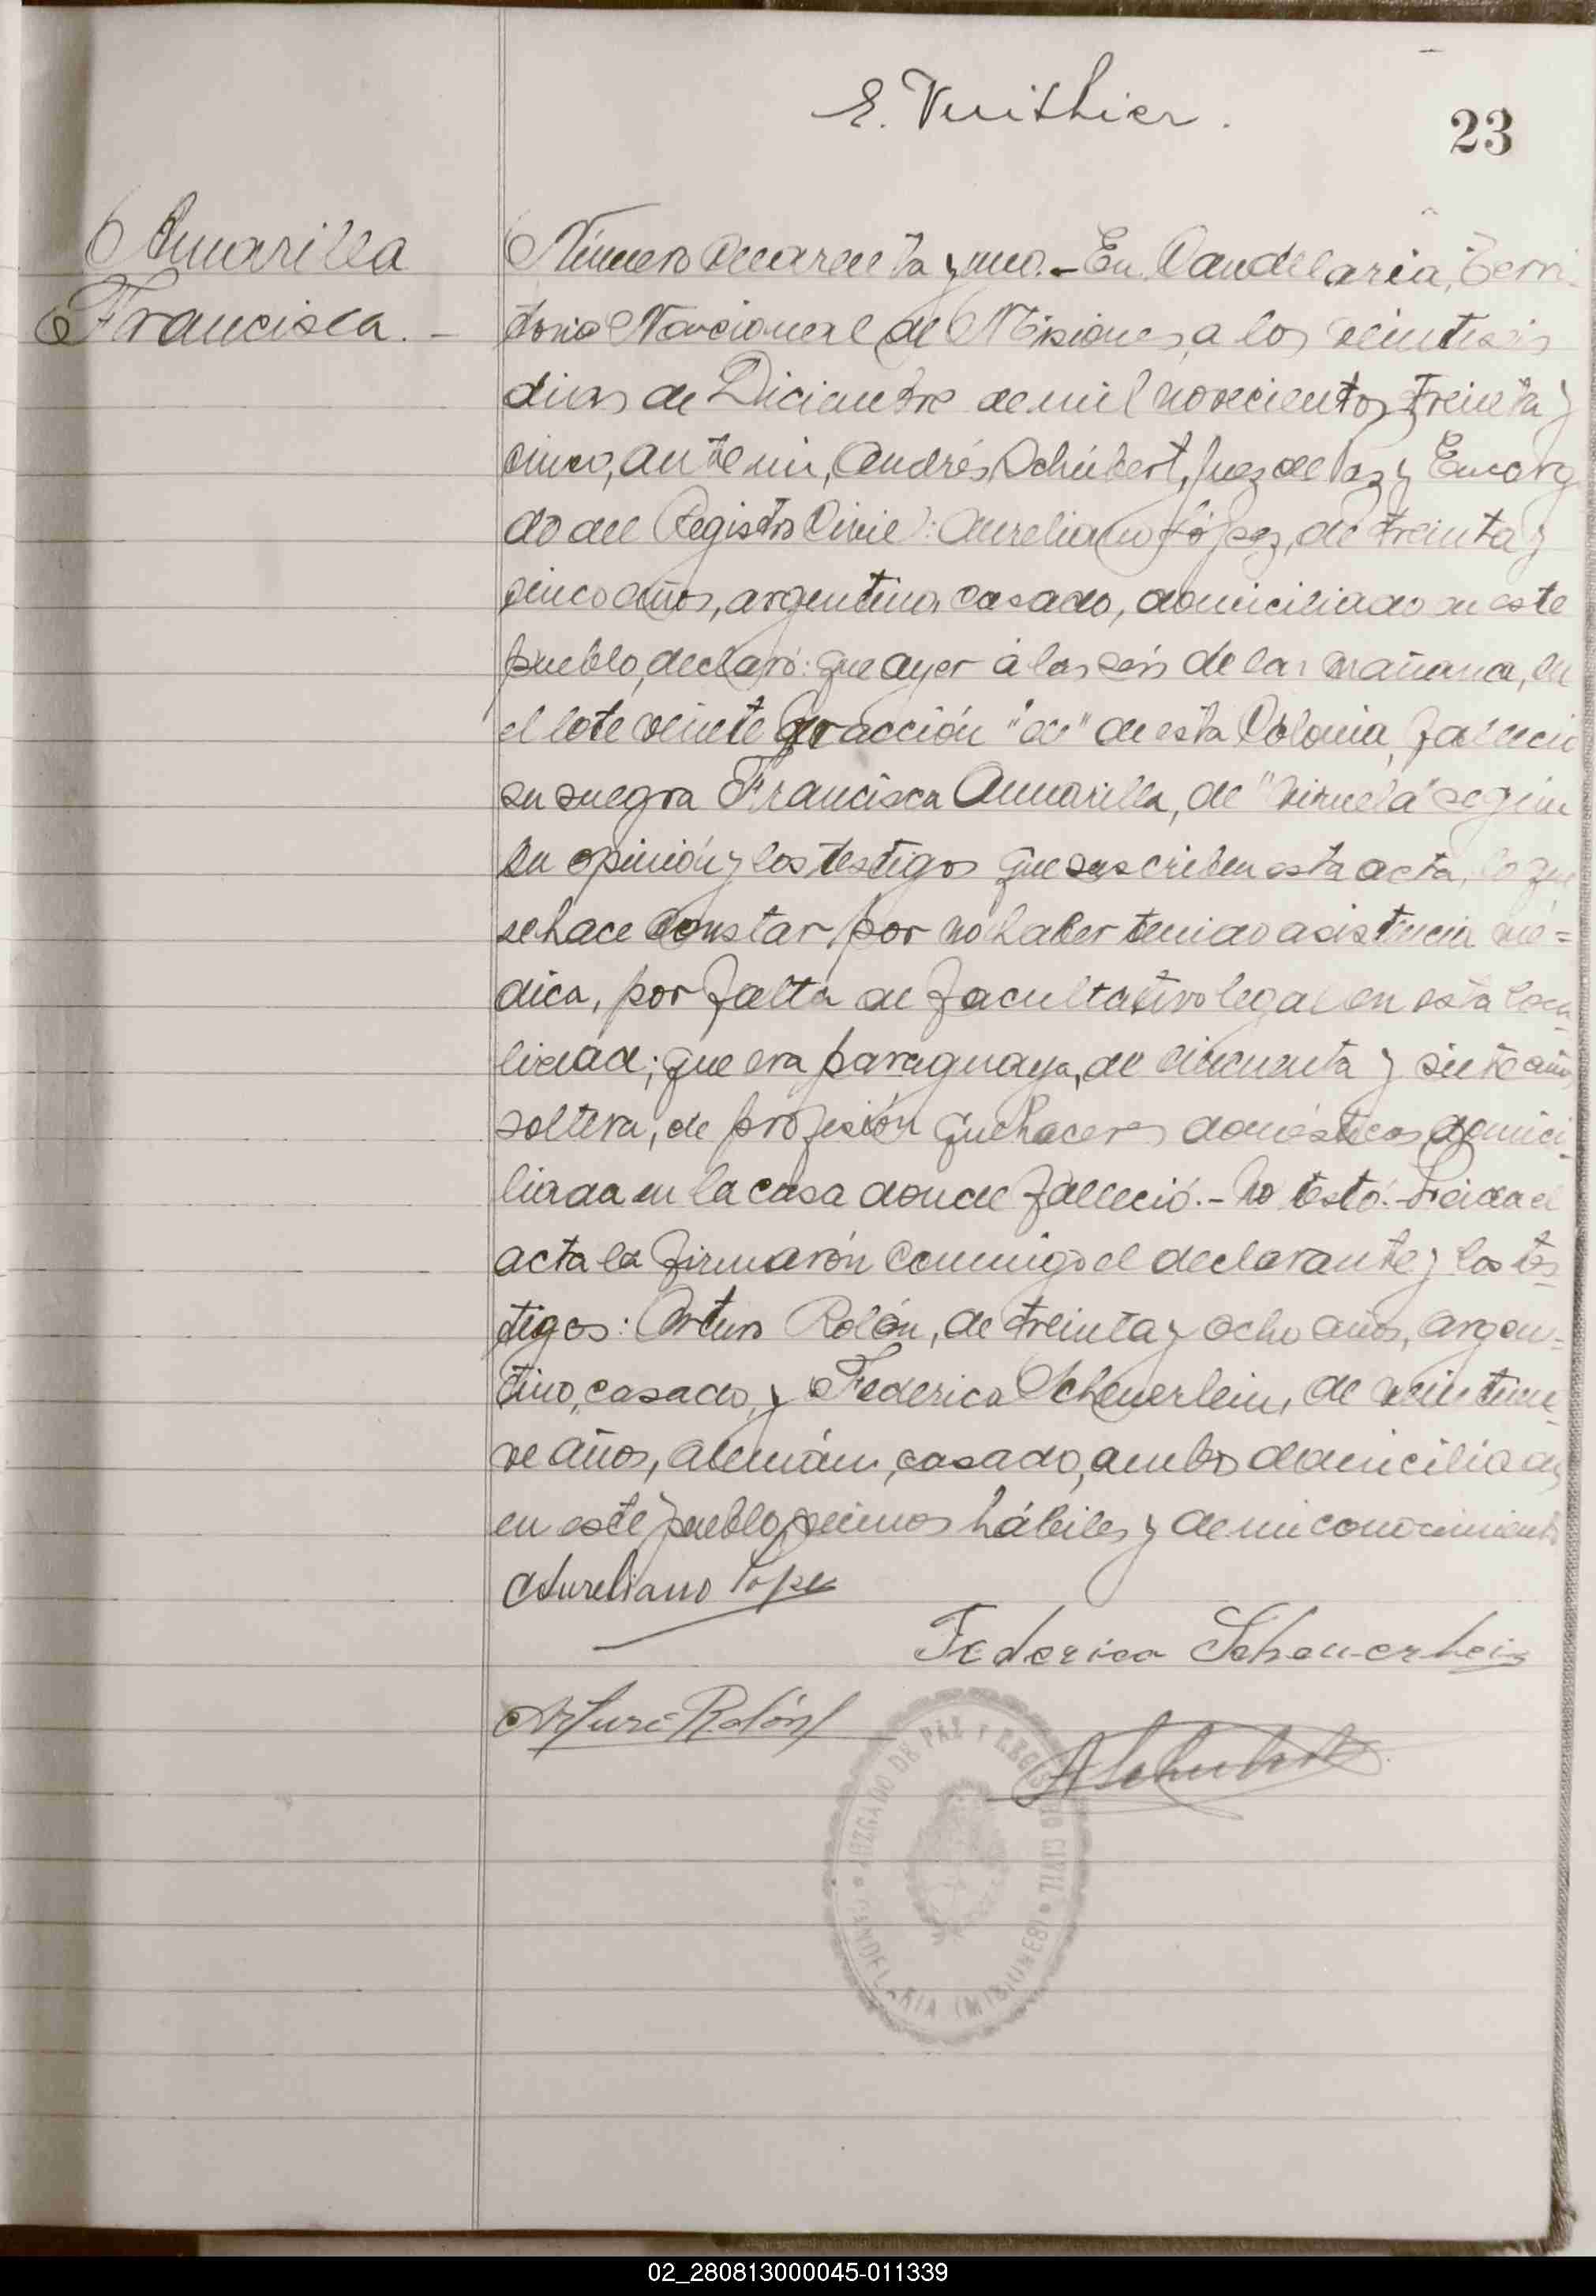 E. Vuithier.
23
Amarilla
Francisca. -
Número Cuarenta y uno. - En Candelaria, Terri-
torio Nacional de Misiones, a los veintiseis
dias de Diciembre de mil novecientos treinta y
cinco, ante mi, Andrés Schúbert, Juez de Paz y Encarg
do del Registro Civil: Aureliano López, de treinta y
cinco años, argentino, casado, domiciliado en este
pueblo, declaró: que ayer á las seis de la mañana, en
el lote veinte fracción de esta Colonia, falleció
su suegra Francisca Amarilla, de "Viruela" según
su opinión y los testigos que suscriben esta acta, lo que
se hace constar por no haber tenido asistencia mé=
dica, por falta de facultativo legal en esta loca-
lidad; que era paraguaya, de cincuenta y siete años
soltera, de profesión quehaceres domésticos, domici-
liada en la casa donde falleció. - No testó. - Leida el
acta la firmarón conmigo el declarante y los tes-
tigos: Arturo Rolón, de treinta y ocho años, argen-
tino, casado, y Federico Scheuerlein, de veintinue-
ve años, alemán, casado, ambos domiciliados
en este pueblo, vecinos hábiles y de mi conocimiento
Aureliano Lopez
Federico Scheuerlein
Arturo Rolón
ASchubert
JUZGADO DE PAZ Y REGISTRO CIVIL
CANDELARIA (MISIONES)
02_280813000045-011339